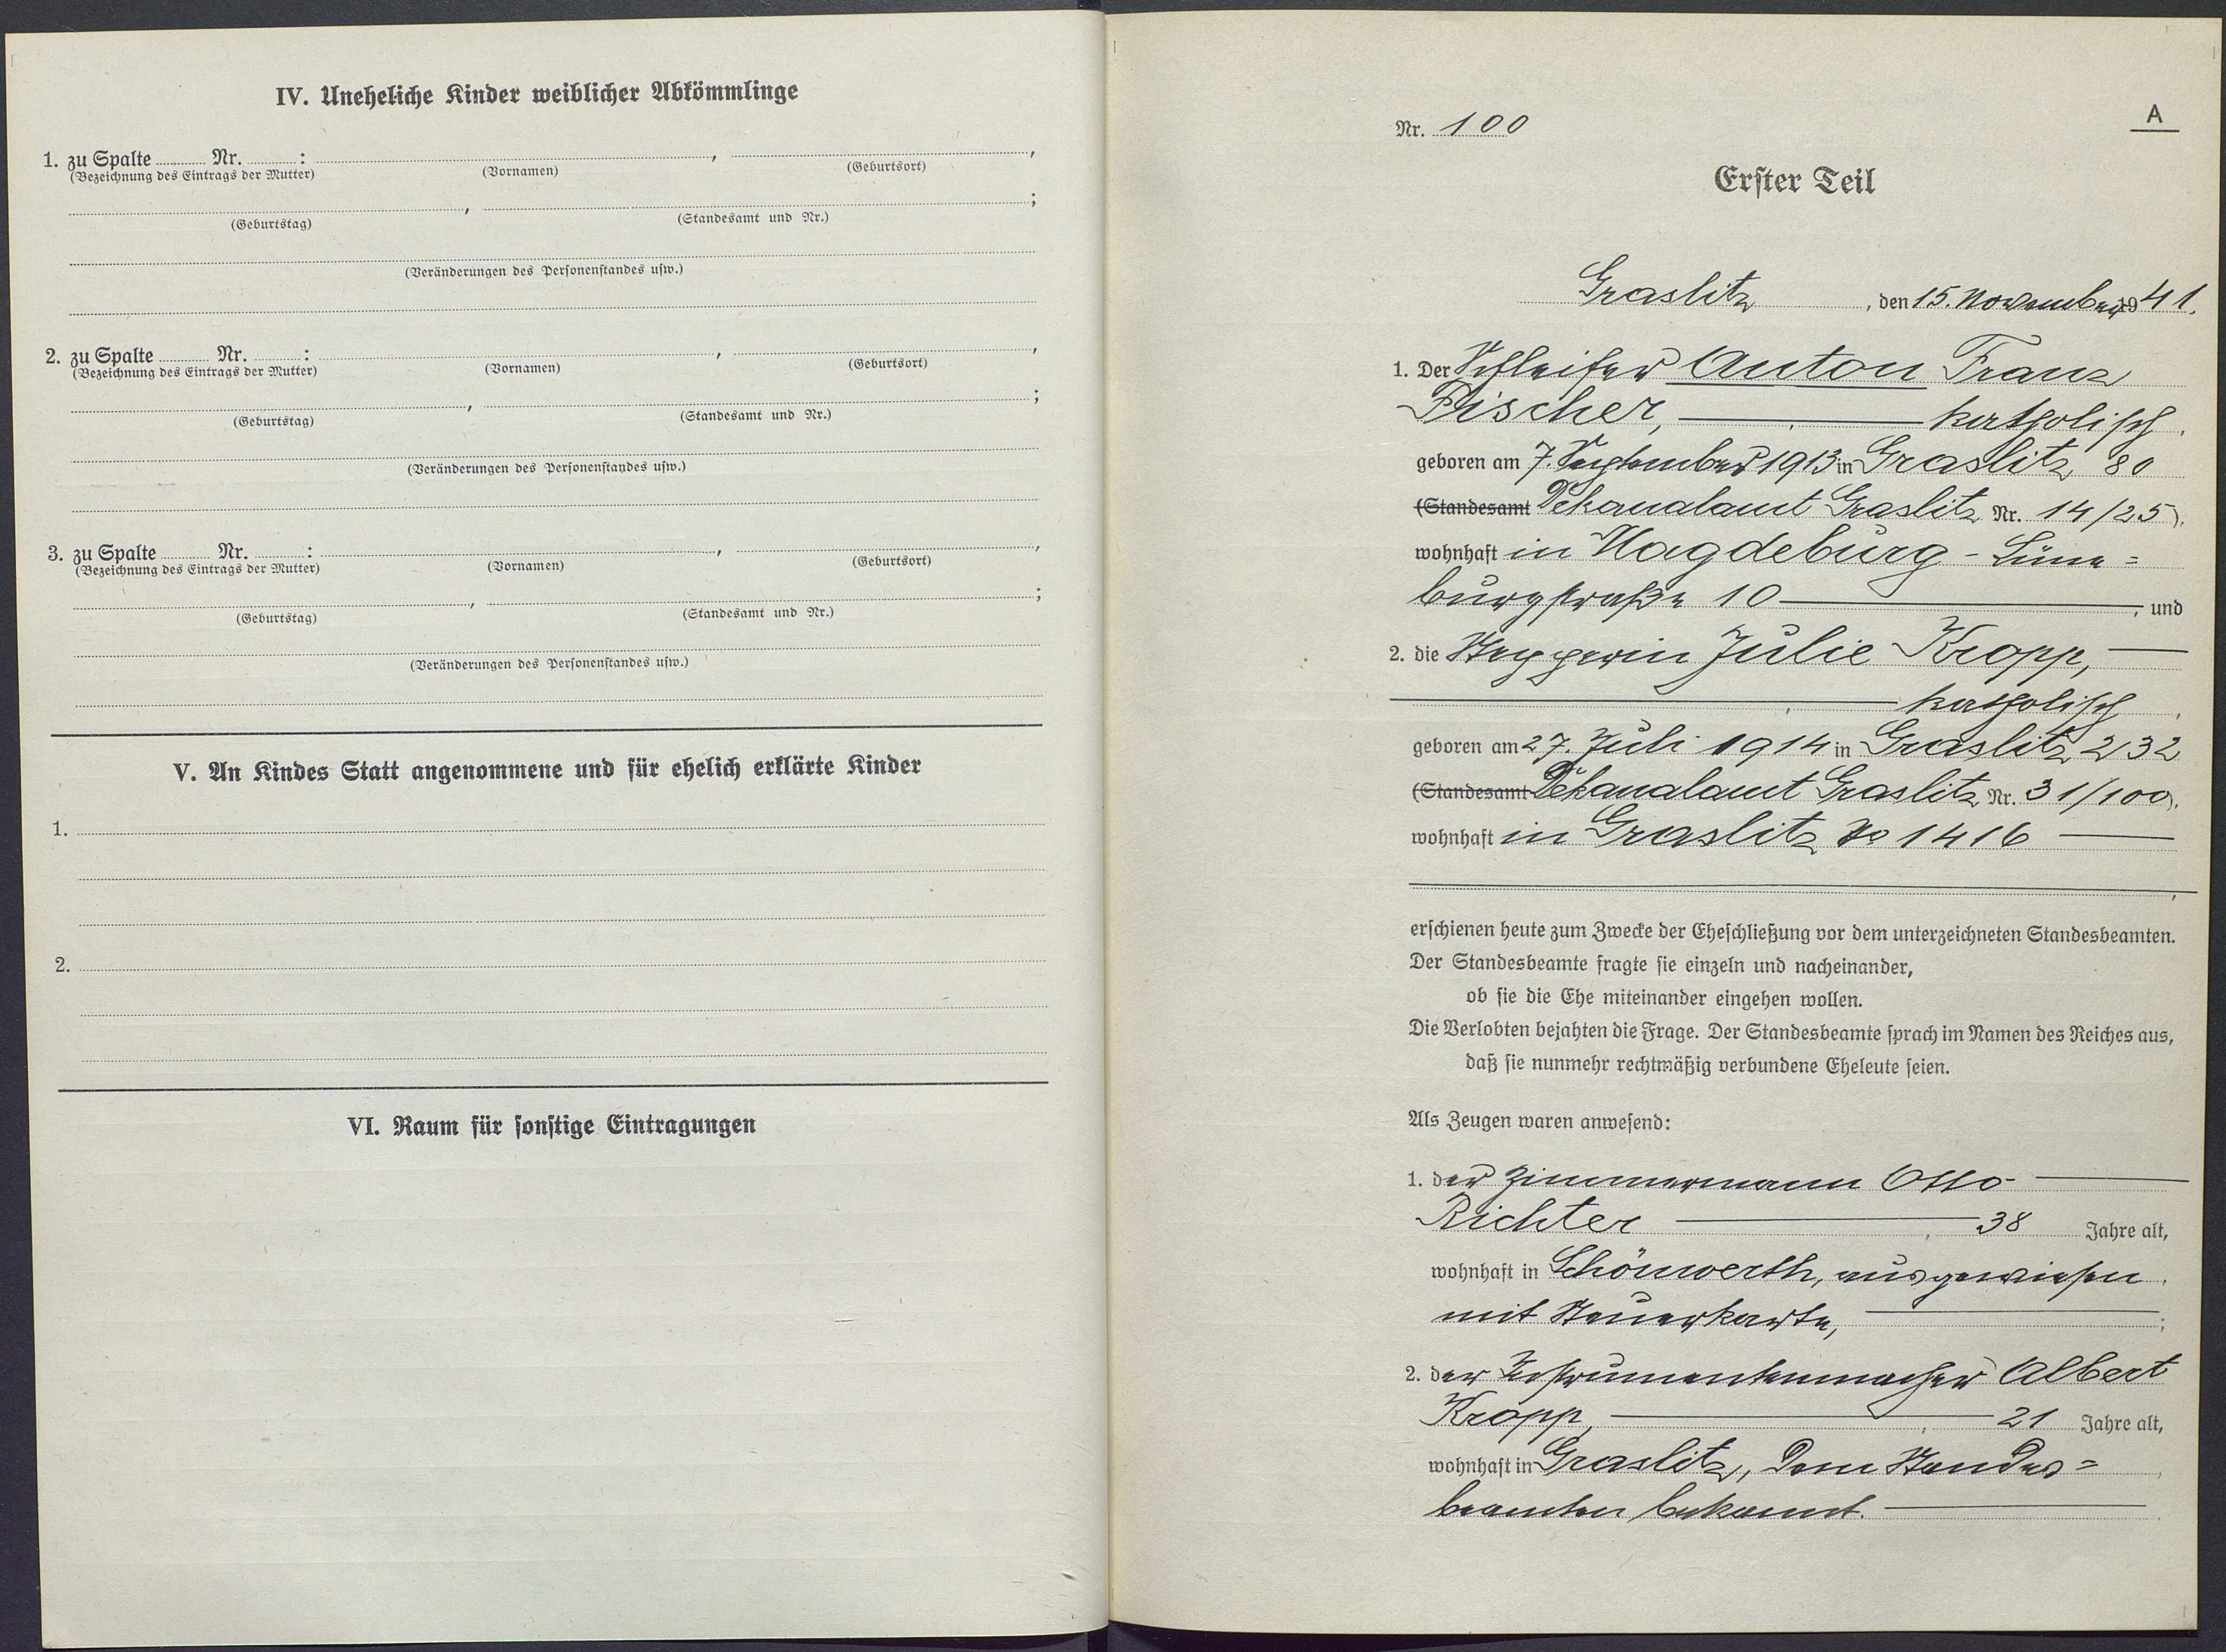 IV. Uneheliche Kinder weiblicher Abkömmlinge
1. zu Spalte ........ Nr. ........ : ........ , ........ ,
(Bezeichnung des Eintrags der Mutter) (Vornamen) (Geburtsort)
........ , ........ ;
(Geburtstag) (Standesamt und Nr.)
(Veränderungen des Personenstandes usw.)
2. zu Spalte ........ Nr. ........ : ........ , ........ ,
(Bezeichnung des Eintrags der Mutter) (Vornamen) (Geburtsort)
........ , ........ ;
(Geburtstag) (Standesamt und Nr.)
(Veränderungen des Personenstandes usw.)
3. zu Spalte ........ Nr. ........ : ........ , ........ ,
(Bezeichnung des Eintrags der Mutter) (Vornamen) (Geburtsort)
........ , ........ ;
(Geburtstag) (Standesamt und Nr.)
(Veränderungen des Personenstandes usw.)
V. An Kindes Statt angenommene und für ehelich erklärte Kinder
1.
2.
VI. Raum für sonstige Eintragungen
A
Nr. 100
Erster Teil
Graslitz, den 15. November 1941.
1. Der Schleifer Anton Franz
Fischer, katholisch,
geboren am 7. September 1913 in Graslitz 80
(Standesamt Dekanalamt Graslitz Nr. 14/25),
wohnhaft in Magdeburg - Lüne=
burgstraße 10, und
2. die Julie Kropp,
katholisch,
geboren am 27. Juli 1914 in Graslitz 232
(Standesamt Dekanalamt Graslitz Nr. 31/100),
wohnhaft in Graslitz No 1416
erschienen heute zum Zwecke der Eheschließung vor dem unterzeichneten Standesbeamten.
Der Standesbeamte fragte sie einzeln und nacheinander,
ob sie die Ehe miteinander eingehen wollen.
Die Verlobten bejahten die Frage. Der Standesbeamte sprach im Namen des Reiches aus,
daß sie nunmehr rechtmäßig verbundene Eheleute seien.
Als Zeugen waren anwesend:
1. der Zimmermann Otto
Richter, 38 Jahre alt,
wohnhaft in Schönwerth, ausgewiesen
mit Steuerkarte, ;
2. der Instrumentenmacher Albert
Kropp, 21 Jahre alt,
wohnhaft in Graslitz, dem Standes=
beamten bekannt.